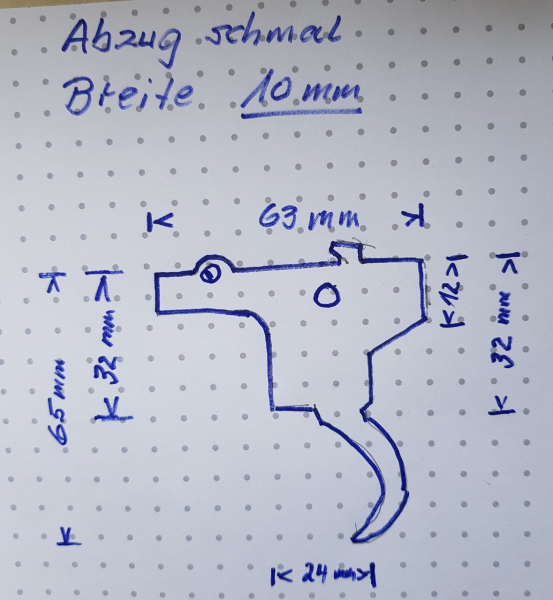 Abzug schmal
Breite 10 mm
63 mm
12
32 mm
32 mm
65 mm
24 mm